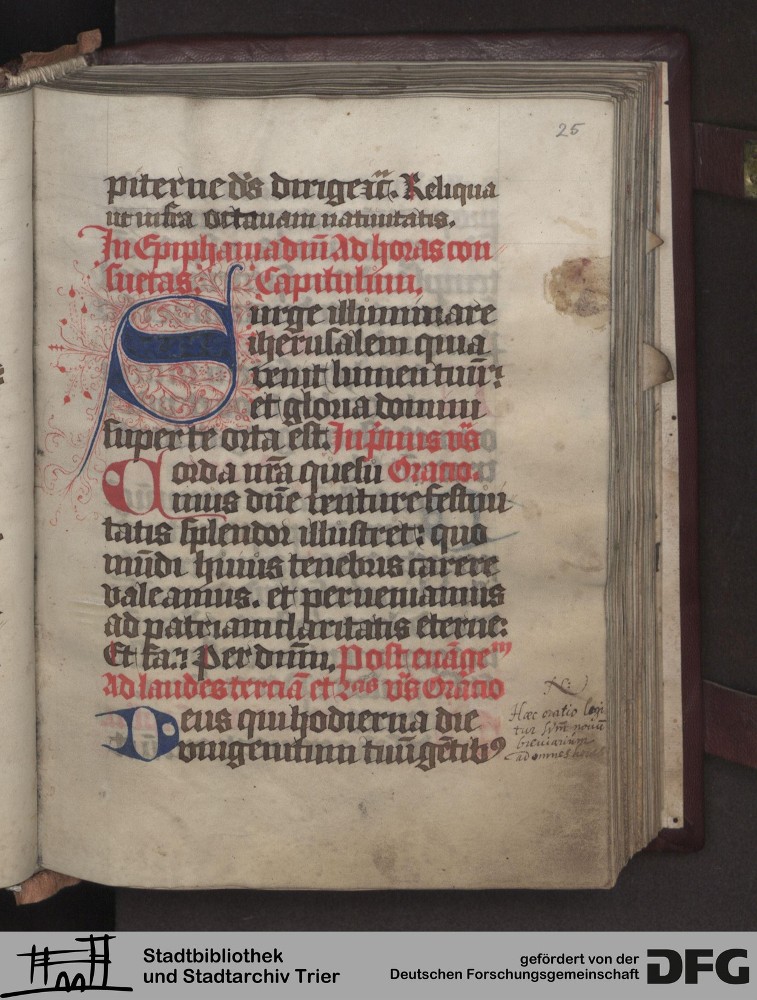 25
piterne ds dirigert. Reliqua
ut infra octauam natiuitatis.
In Epiphania dni Ad horas con
suetas. Capitulum.
Surge illuminare
iherusalem quia
venit lumen tuū:
et gloria domini
super te orta est. In primis vs
Corda nra quesu Oratio.
mus dne venture festiui
tatis splendor illustret: quo
mūdi huius tenebris carere
valeamus. et perueniamus
ad patriam claritatis eterne:
Et fa. Per dnm. Post euāge
Ad laudes terciā et vs Oratio
Deus qui hodierna die
vnigenitum tuū gētib9
Hæc oratio legi
tur
breuiarium
ad omnes horas
Stadtbibliothek
und Stadtarchiv Trier
gefördert von der
Deutschen Forschungsgemeinschaft
DFG